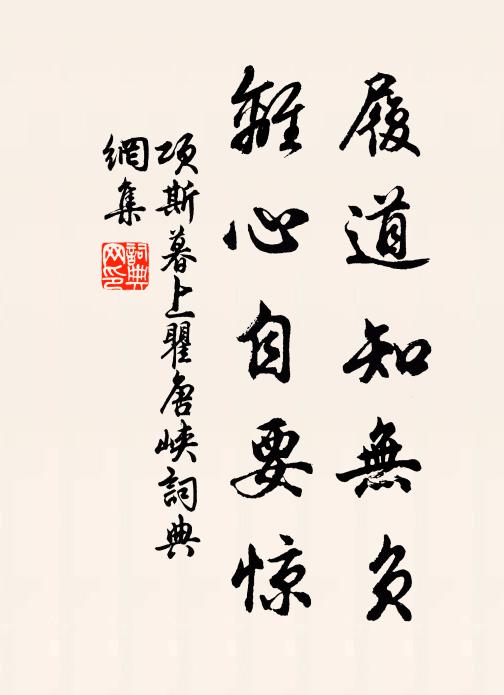 履道知無負
離心自要惊
項斯暮上瞿唐峽詞典
網集
詞典
网印